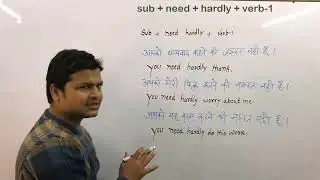 sub + need + hardly + verb-1
Sub + need hardly + verb-1
आपको धन्यवाद कहने की जरूरत नहीं है।
You need hardly thank.
आपको मेरी फिक्र करने की जरूरत नहीं है।
You need hardly worry about me.
आपको यह काम करने की जरूरत नहीं है।
You need hardly do this work.